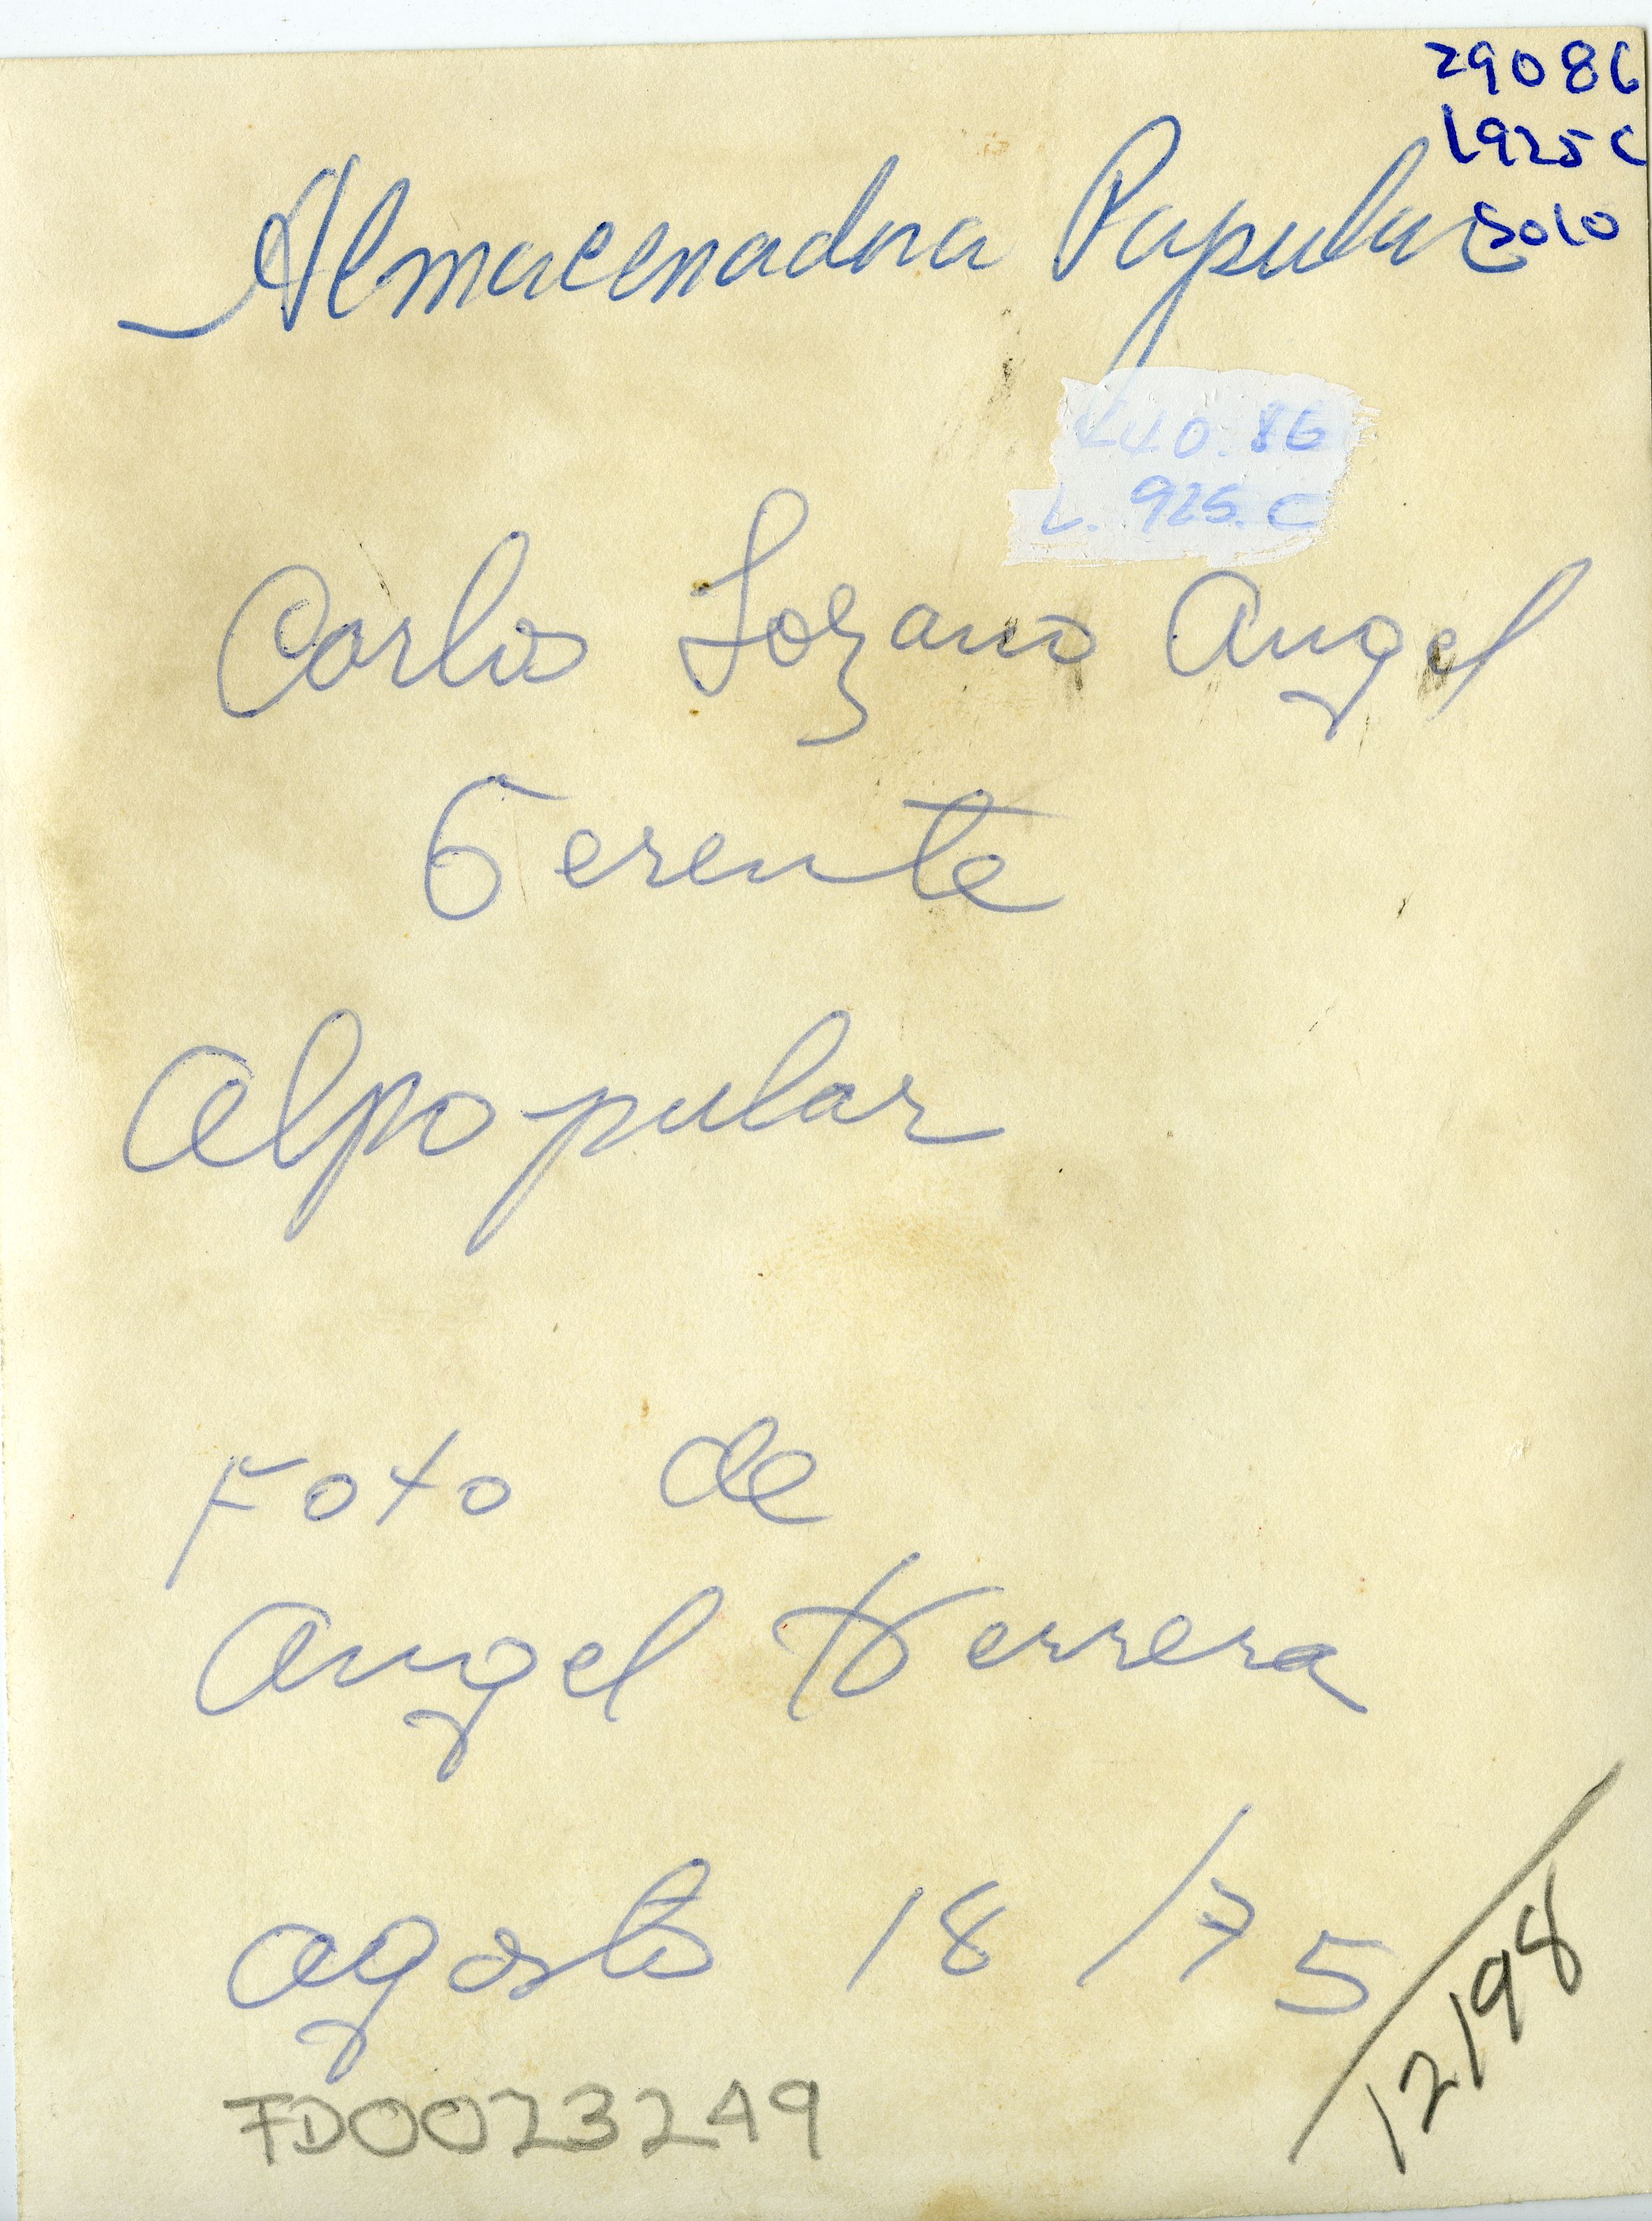 29086
L925C
Solo
Almacenadora Popular
440.86
L. 925. C
Carlos Lozano Angel
Gerente
Alpopular
Foto de
Angel Herrera
agosto 18/75
12/98
FD0023249